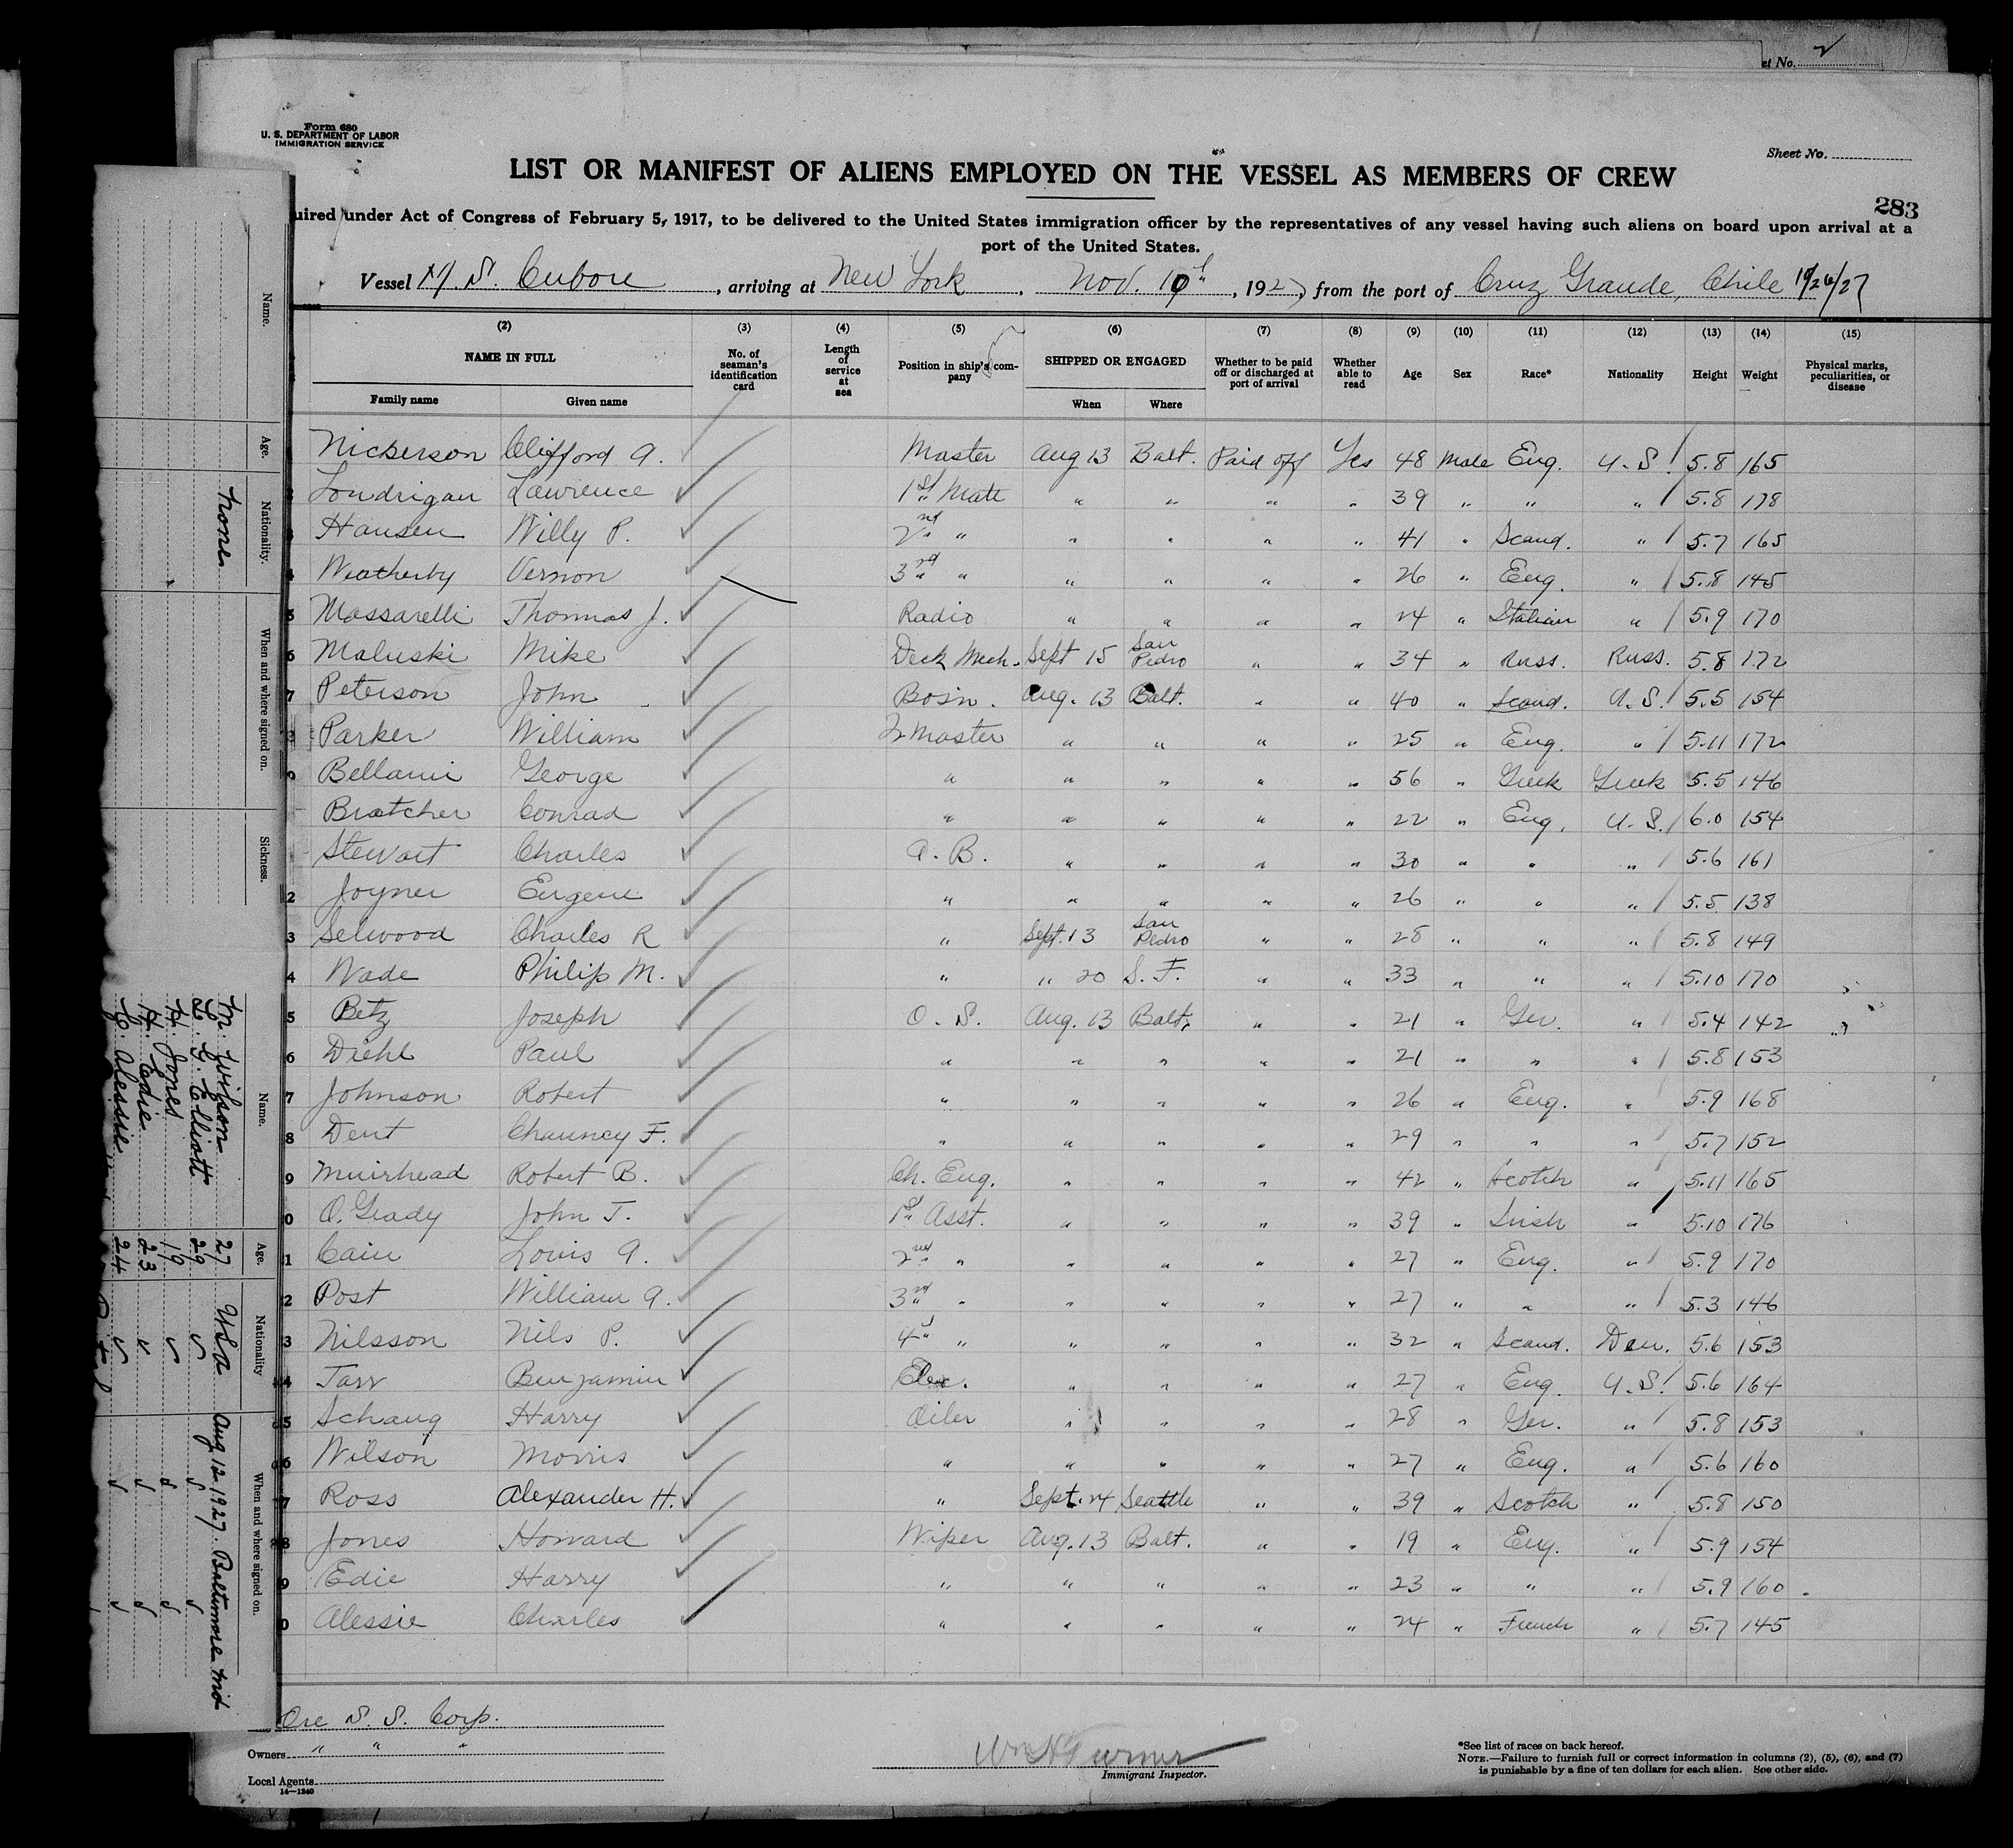 et No. 2
Form 680
U. S. DEPARTMENT OF LABOR
IMMIGRATION SERVICE
Sheet No.
LIST OR MANIFEST OF ALIENS EMPLOYED ON THE VESSEL AS MEMBERS OF CREW
283
uired under Act of Congress of February 5, 1917, to be delivered to the United States immigration officer by the representatives of any vessel having such aliens on board upon arrival at a
port of the United States.
Vessel M. S. Cubore, arriving at New York, Nov. 10, 1927, from the port of Cruz Grande, Chile 10/26/27
(2) (3) (4) (5) (6) (7) (8) (9) (10) (11) (12) (13) (14) (15)
NAME IN FULL No. of seaman's identification card Length of service at sea Position in ship's company SHIPPED OR ENGAGED Whether to be paid off or discharged at port of arrival Whether able to read Age Sex Race* Nationality Height Weight Physical marks, peculiarities, or disease
Family name Given name When Where
Nickerson Clifford A. Master Aug 13 Balt. Paid off Yes 48 Male Eng. U. S. 5.8 165
Londrigan Lawrence 1st Mate " " " " 39 " " " 5.8 178
3 Hansen Willy P. 2nd " " " " " 41 " Scand. " 5.7 165
4 Weatherby Vernon 3rd " " " " " 26 " Eng. " 5.8 145
5 Massarelli Thomas J. Radio " " " " 24 " Italian " 5.9 170
6 Maluski Mike Deck Mech. Sept 15 San Pedro " " 34 " Russ. Russ. 5.8 172
7 Peterson John Bos'n. Aug. 13 Balt. " " 40 " Scand. U. S. 5.5 154
Parker William Qr Master " " " " 25 " Eng. " 5.11 172
9 Bellami George " " " " " 56 " Greek Greek 5.5 146
Bratcher Conrad " " " " " 22 " Eng. U. S. 6.0 154
Stewart Charles A. B. " " " " 30 " " " 5.6 161
2 Joyner Eugene " " " " " 26 " " " 5.5 138
3 Selwood Charles R " Sept. 13 San Pedro " " 28 " " " 5.8 149
4 Wade Philip M. " " 20 S. F. " " 33 " " " 5.10 170
5 Betz Joseph O. S. Aug. 13 Balt. " " 21 " Ger. " 5.4 142
6 Diehl Paul " " " " " 21 " " " 5.8 153
7 Johnson Robert " " " " " 26 " Eng. " 5.9 168
8 Dent Chauncy F. " " " " " 29 " " " 5.7 152
9 Muirhead Robert B. Ch. Eng. " " " " 42 " Scotch " 5.11 165
0 O.Grady John T. 1st Asst. " " " " 39 " Irish " 5.10 176
1 Cain Louis A. 2nd " " " " " 27 " Eng. " 5.9 170
2 Post William A. 3rd " " " " " 27 " " " 5.3 146
3 Nilsson Nils P. 4" " " " " " 32 " Scand. Den. 5.6 153
4 Tarr Benjamin Elec. " " " " 27 " Eng. U. S. 5.6 164
5 Schaug Harry Oiler " " " " 28 " Ger. " 5.8 153
6 Wilson Morris " " " " " 27 " Eng. " 5.6 160
7 Ross Alexander H. " Sept. 24 Seattle " " 39 " Scotch " 5.8 150
8 Jones Howard Wiper Aug. 13 Balt. " " 19 " Eng. " 5.9 154
9 Edie Harry " " " " " 23 " " " 5.9 160
0 Alessie Charles " " " " " 24 " French " 5.7 145
Ore S. S. Corp.
Owners " " "
Local Agents
14—1240
Wm H Turner
Immigrant Inspector.
*See list of races on back hereof.
NOTE.—Failure to furnish full or correct information in columns (2), (5), (6), and (7)
is punishable by a fine of ten dollars for each alien. See other side.
Name. Age. Nationality. When and where signed on. Sickness. Name. Age. Nationality When and where signed on.
None
M. Wilson 27 USA Aug 12 1927. Baltimore Md
G. Elliott 29 " " "
H. Jones 19 " " "
H. Edie 23 " " "
C. Alessie 24 " " "